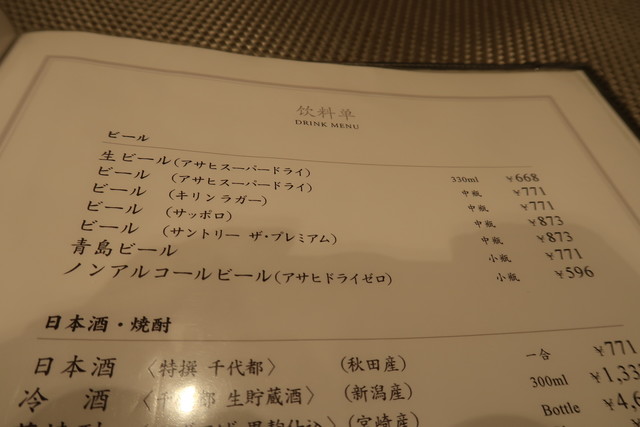 饮料单
DRINK MENU
ビール
生ビール(アサヒスーパードライ) 330ml ¥668
ビール (アサヒスーパードライ) 中瓶 ¥771
ビール (キリンラガー) 中瓶 ¥771
ビール (サッポロ) 中瓶 ¥873
ビール (サントリー ザ・プレミアム) 中瓶 ¥873
青島ビール 小瓶 ¥771
ノンアルコールビール(アサヒドライゼロ) 小瓶 ¥596
日本酒・焼酎
日本酒 〈特撰 千代都〉 (秋田産) 一合 ¥771
冷 酒 〈千 都 生貯蔵酒〉 (新潟産) 300ml ¥1,33
(宮崎産) Bottle ¥4,6